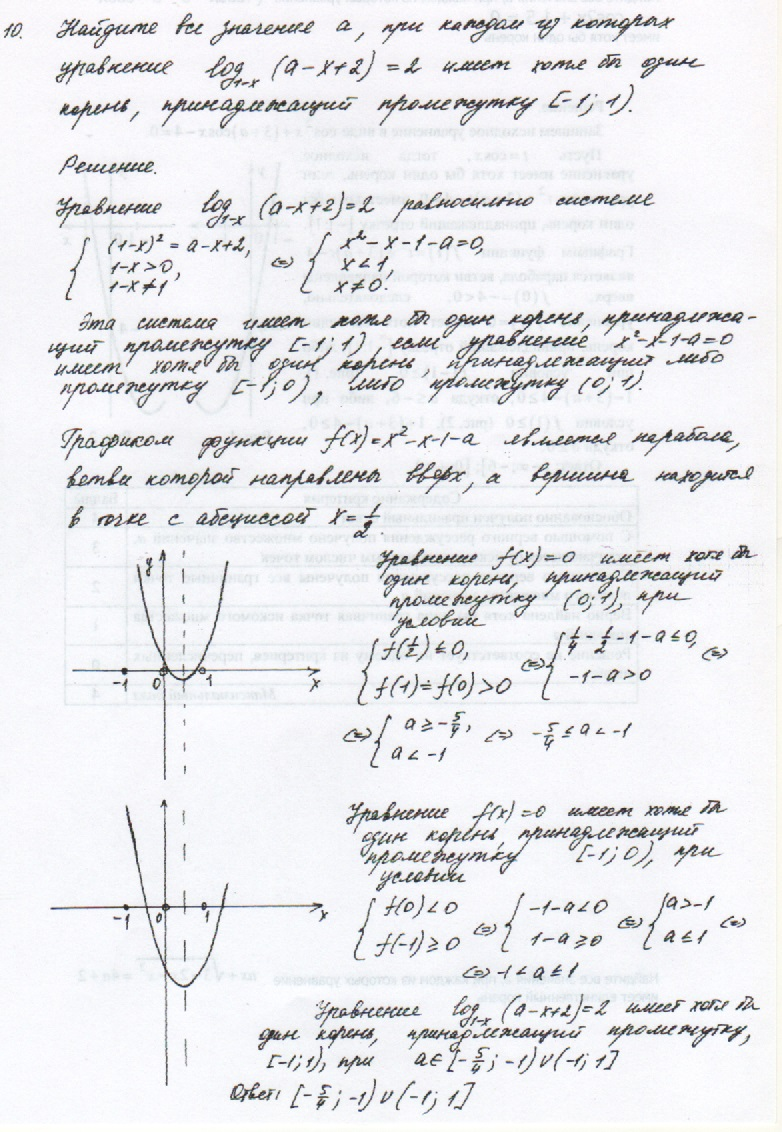 10. Найдите все значение a, при каждом из которых
уравнение log₁₋ₓ (a-x+2) = 2 имеет хотя бы один
корень, принадлежащий промежутку [-1; 1).
Решение.
Уравнение log₁₋ₓ (a-x+2)=2 равносильно системе
{ (1-x)² = a-x+2, 1-x>0, 1-x≠1 ⇔ { x²-x-1-a=0, x<1, x≠0.
Эта система имеет хотя бы один корень, принадлежа-
щий промежутку [-1; 1), если уравнение x²-x-1-a=0
имеет хотя бы один корень принадлежащий либо
промежутку [-1; 0), либо промежутку (0; 1).
Графиком функции f(x)=x²-x-1-a является парабола,
ветви которой направлены вверх, а вершина находится
в точке с абсциссой x=1/2
Уравнение f(x)=0 имеет хотя бы
один корень, принадлежащий
промежутку (0; 1), при
условии
{ f(1/2) ≤ 0, f(1)=f(0)>0 ⇔ { 1/4 - 1/2 - 1 - a ≤ 0, -1-a>0 ⇔
⇔ { a ≥ -5/4, a < -1 ⇔ -5/4 ≤ a < -1
y
-1 0 1 x
Уравнение f(x)=0 имеет хотя бы
один корень, принадлежащий
промежутку [-1; 0), при
условии
{ f(0)<0 f(-1) ≥ 0 ⇔ { -1-a<0 1-a≥0 ⇔ { a>-1 a≤1 ⇔
⇔ -1 < a ≤ 1
-1 0 1 x
Уравнение log₁₋ₓ (a-x+2)=2 имеет хотя бы
один корень, принадлежащий промежутку,
[-1; 1), при a∈[-5/4; -1)∪(-1; 1]
Ответ: [-5/4; -1)∪(-1; 1]